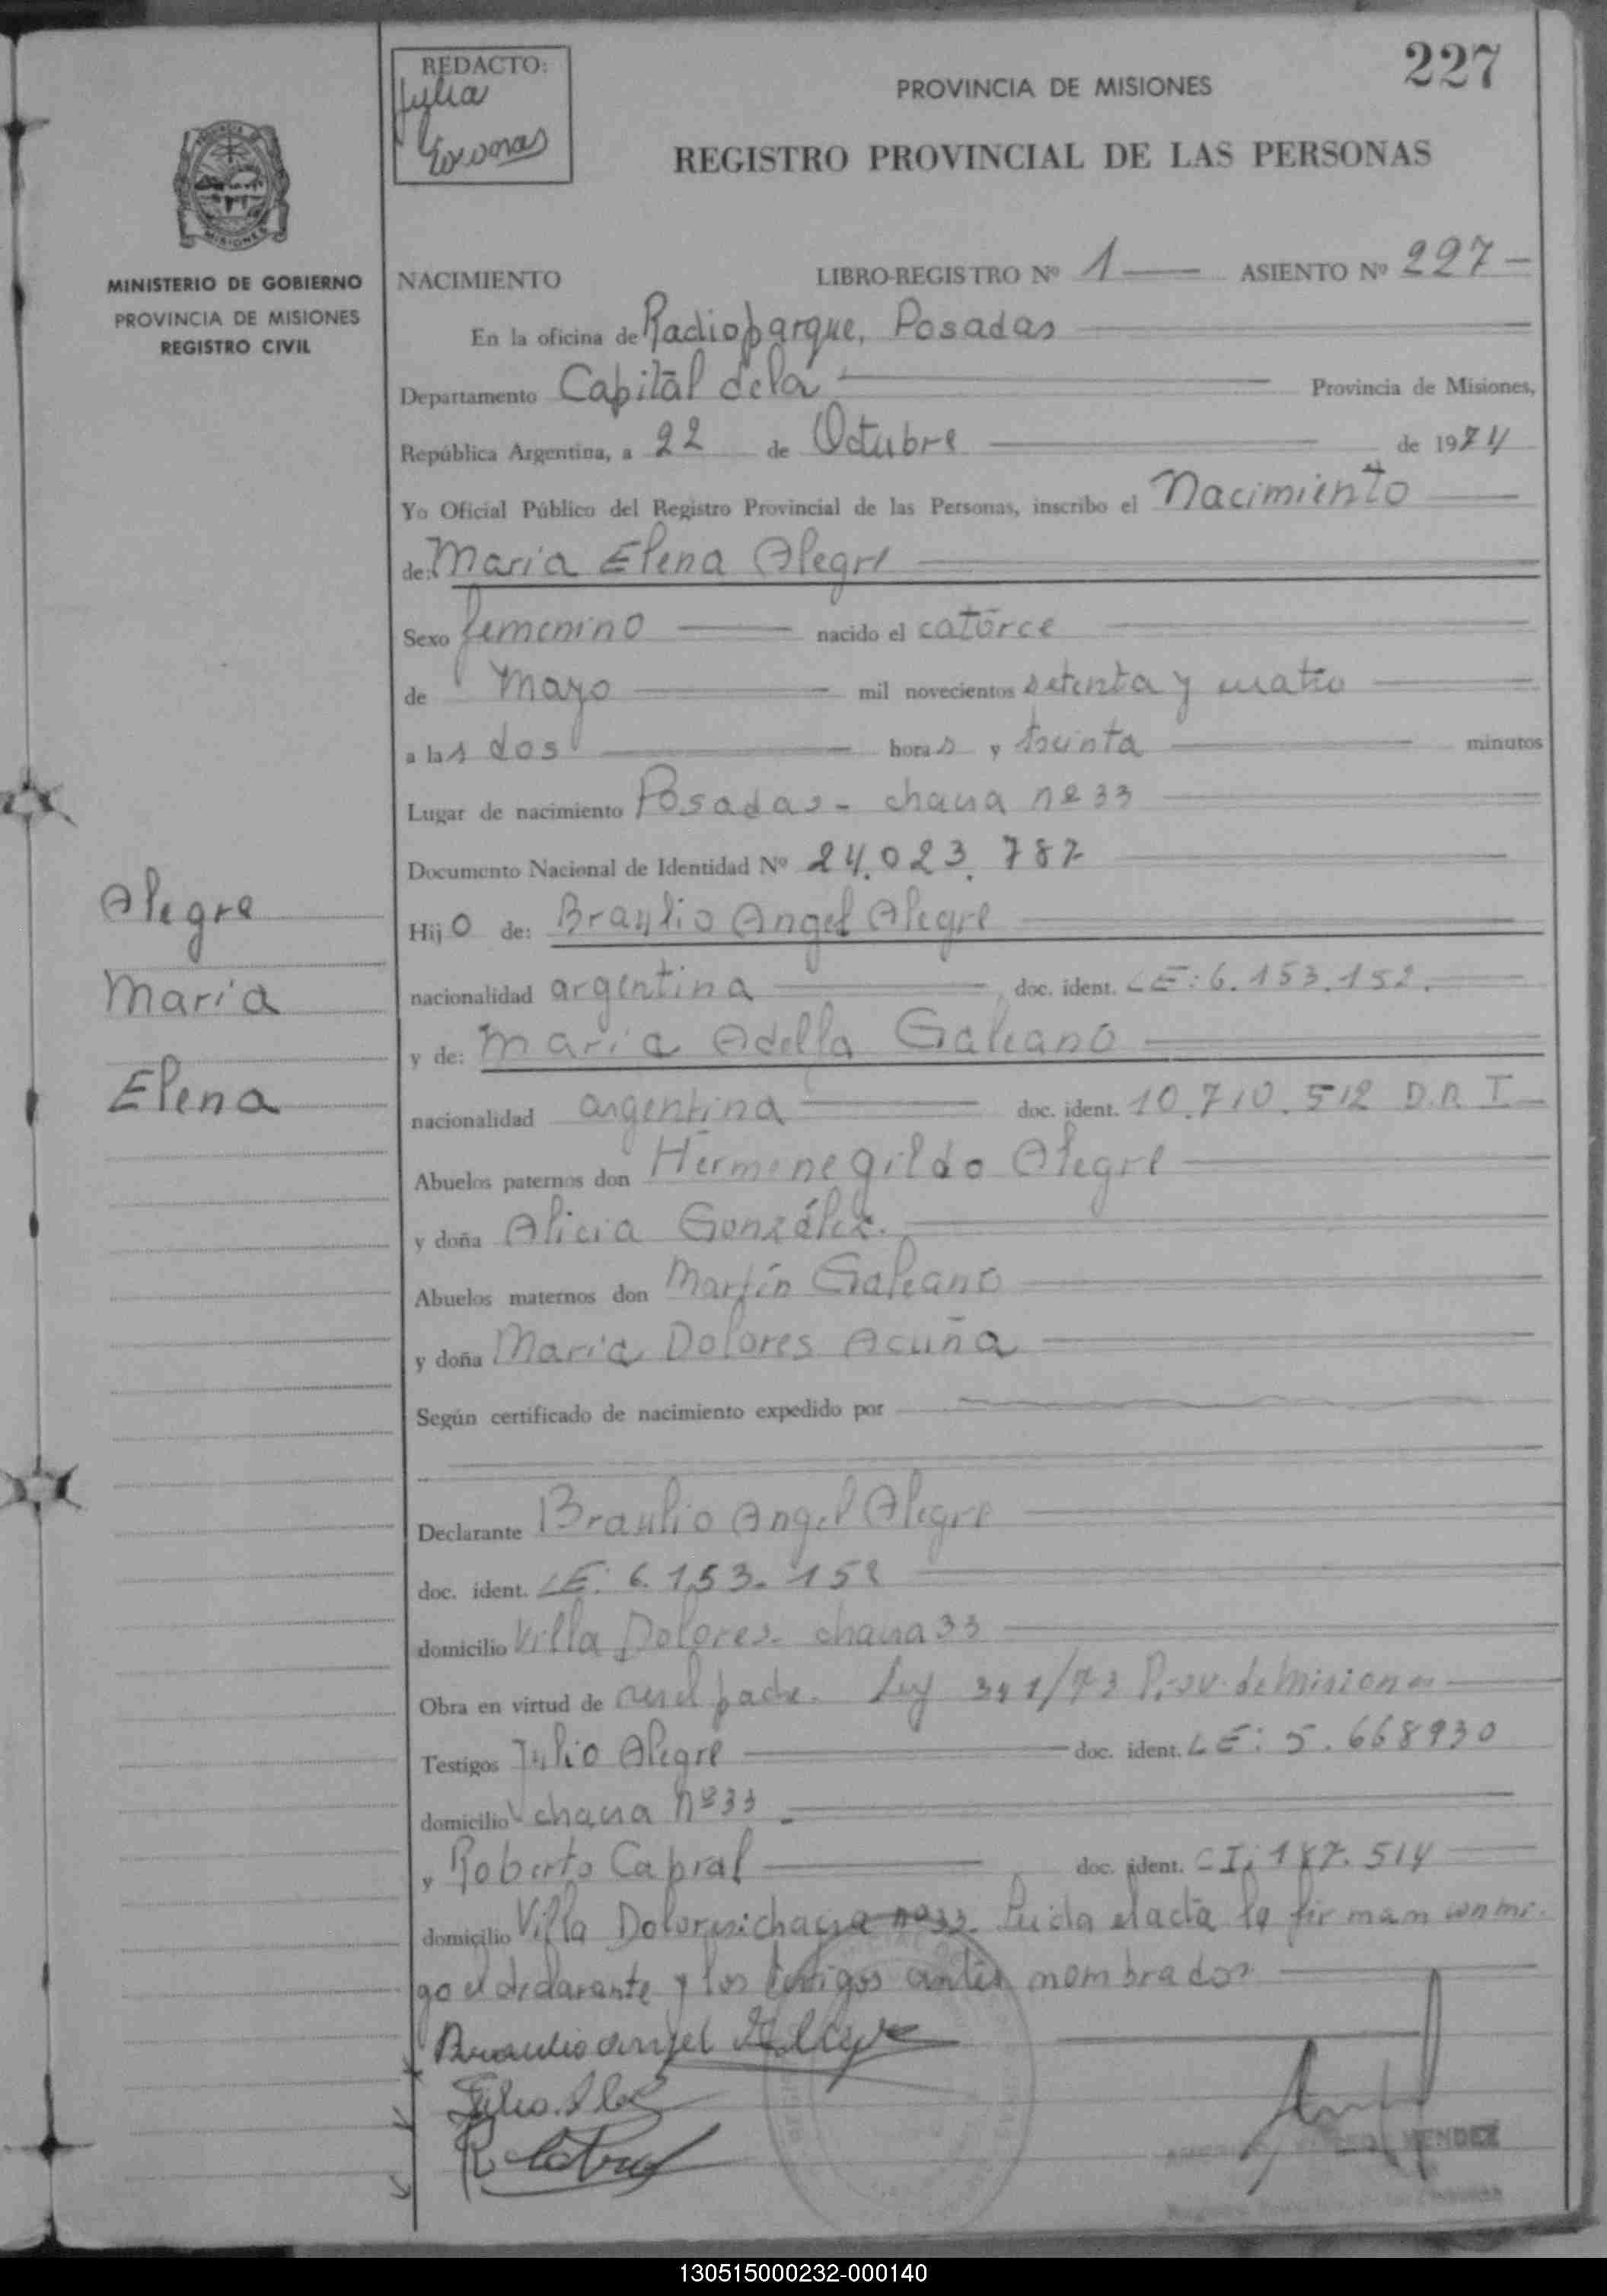 227
REDACTO:
Julia
PROVINCIA DE MISIONES
REGISTRO PROVINCIAL DE LAS PERSONAS
MISIONES
MINISTERIO DE GOBIERNO
PROVINCIA DE MISIONES
REGISTRO CIVIL
NACIMIENTO LIBRO-REGISTRO Nº 1 ASIENTO Nº 227
En la oficina de Radioparque, Posadas
Departamento Capital dela Provincia de Misiones,
República Argentina, a 22 de Octubre de 1974
Yo Oficial Público del Registro Provincial de las Personas, inscribo el Nacimiento
de: Maria Elena Alegre
Sexo femenino nacido el catorce
de Mayo mil novecientos setenta y cuatro
a las dos horas y treinta minutos
Lugar de nacimiento Posadas - chacra nº 33
Documento Nacional de Identidad Nº 24.023.787
Alegre
Maria
Elena
Hijo de: Braulio Angel Alegre
nacionalidad argentina doc. ident. LE: 6.153.152.
y de: Maria Adella Galeano
nacionalidad argentina doc. ident. 10.710.512 D.N.I.
Abuelos paternos don Hermenegildo Alegre
y doña Alicia González.
Abuelos maternos don Martín Galeano
y doña Maria Dolores Acuña
Según certificado de nacimiento expedido por
Declarante Braulio Angel Alegre
doc. ident. LE: 6.153.152
domicilio Villa Dolores - chacra 33
Obra en virtud de ser el padre. Ley 341/73 Prov. de Misiones
Testigos Julio Alegre doc. ident. LE: 5.668930
domicilio chacra Nº 33
y Roberto Cabral doc. ident. CI: 187.514
domicilio Villa Dolores chacra nº 33. Leida el acta la firman conmi-
go el declarante y los testigos antes nombrados
Braulio Angel Alegre
Julio Ale
MENDEZ
130515000232-000140